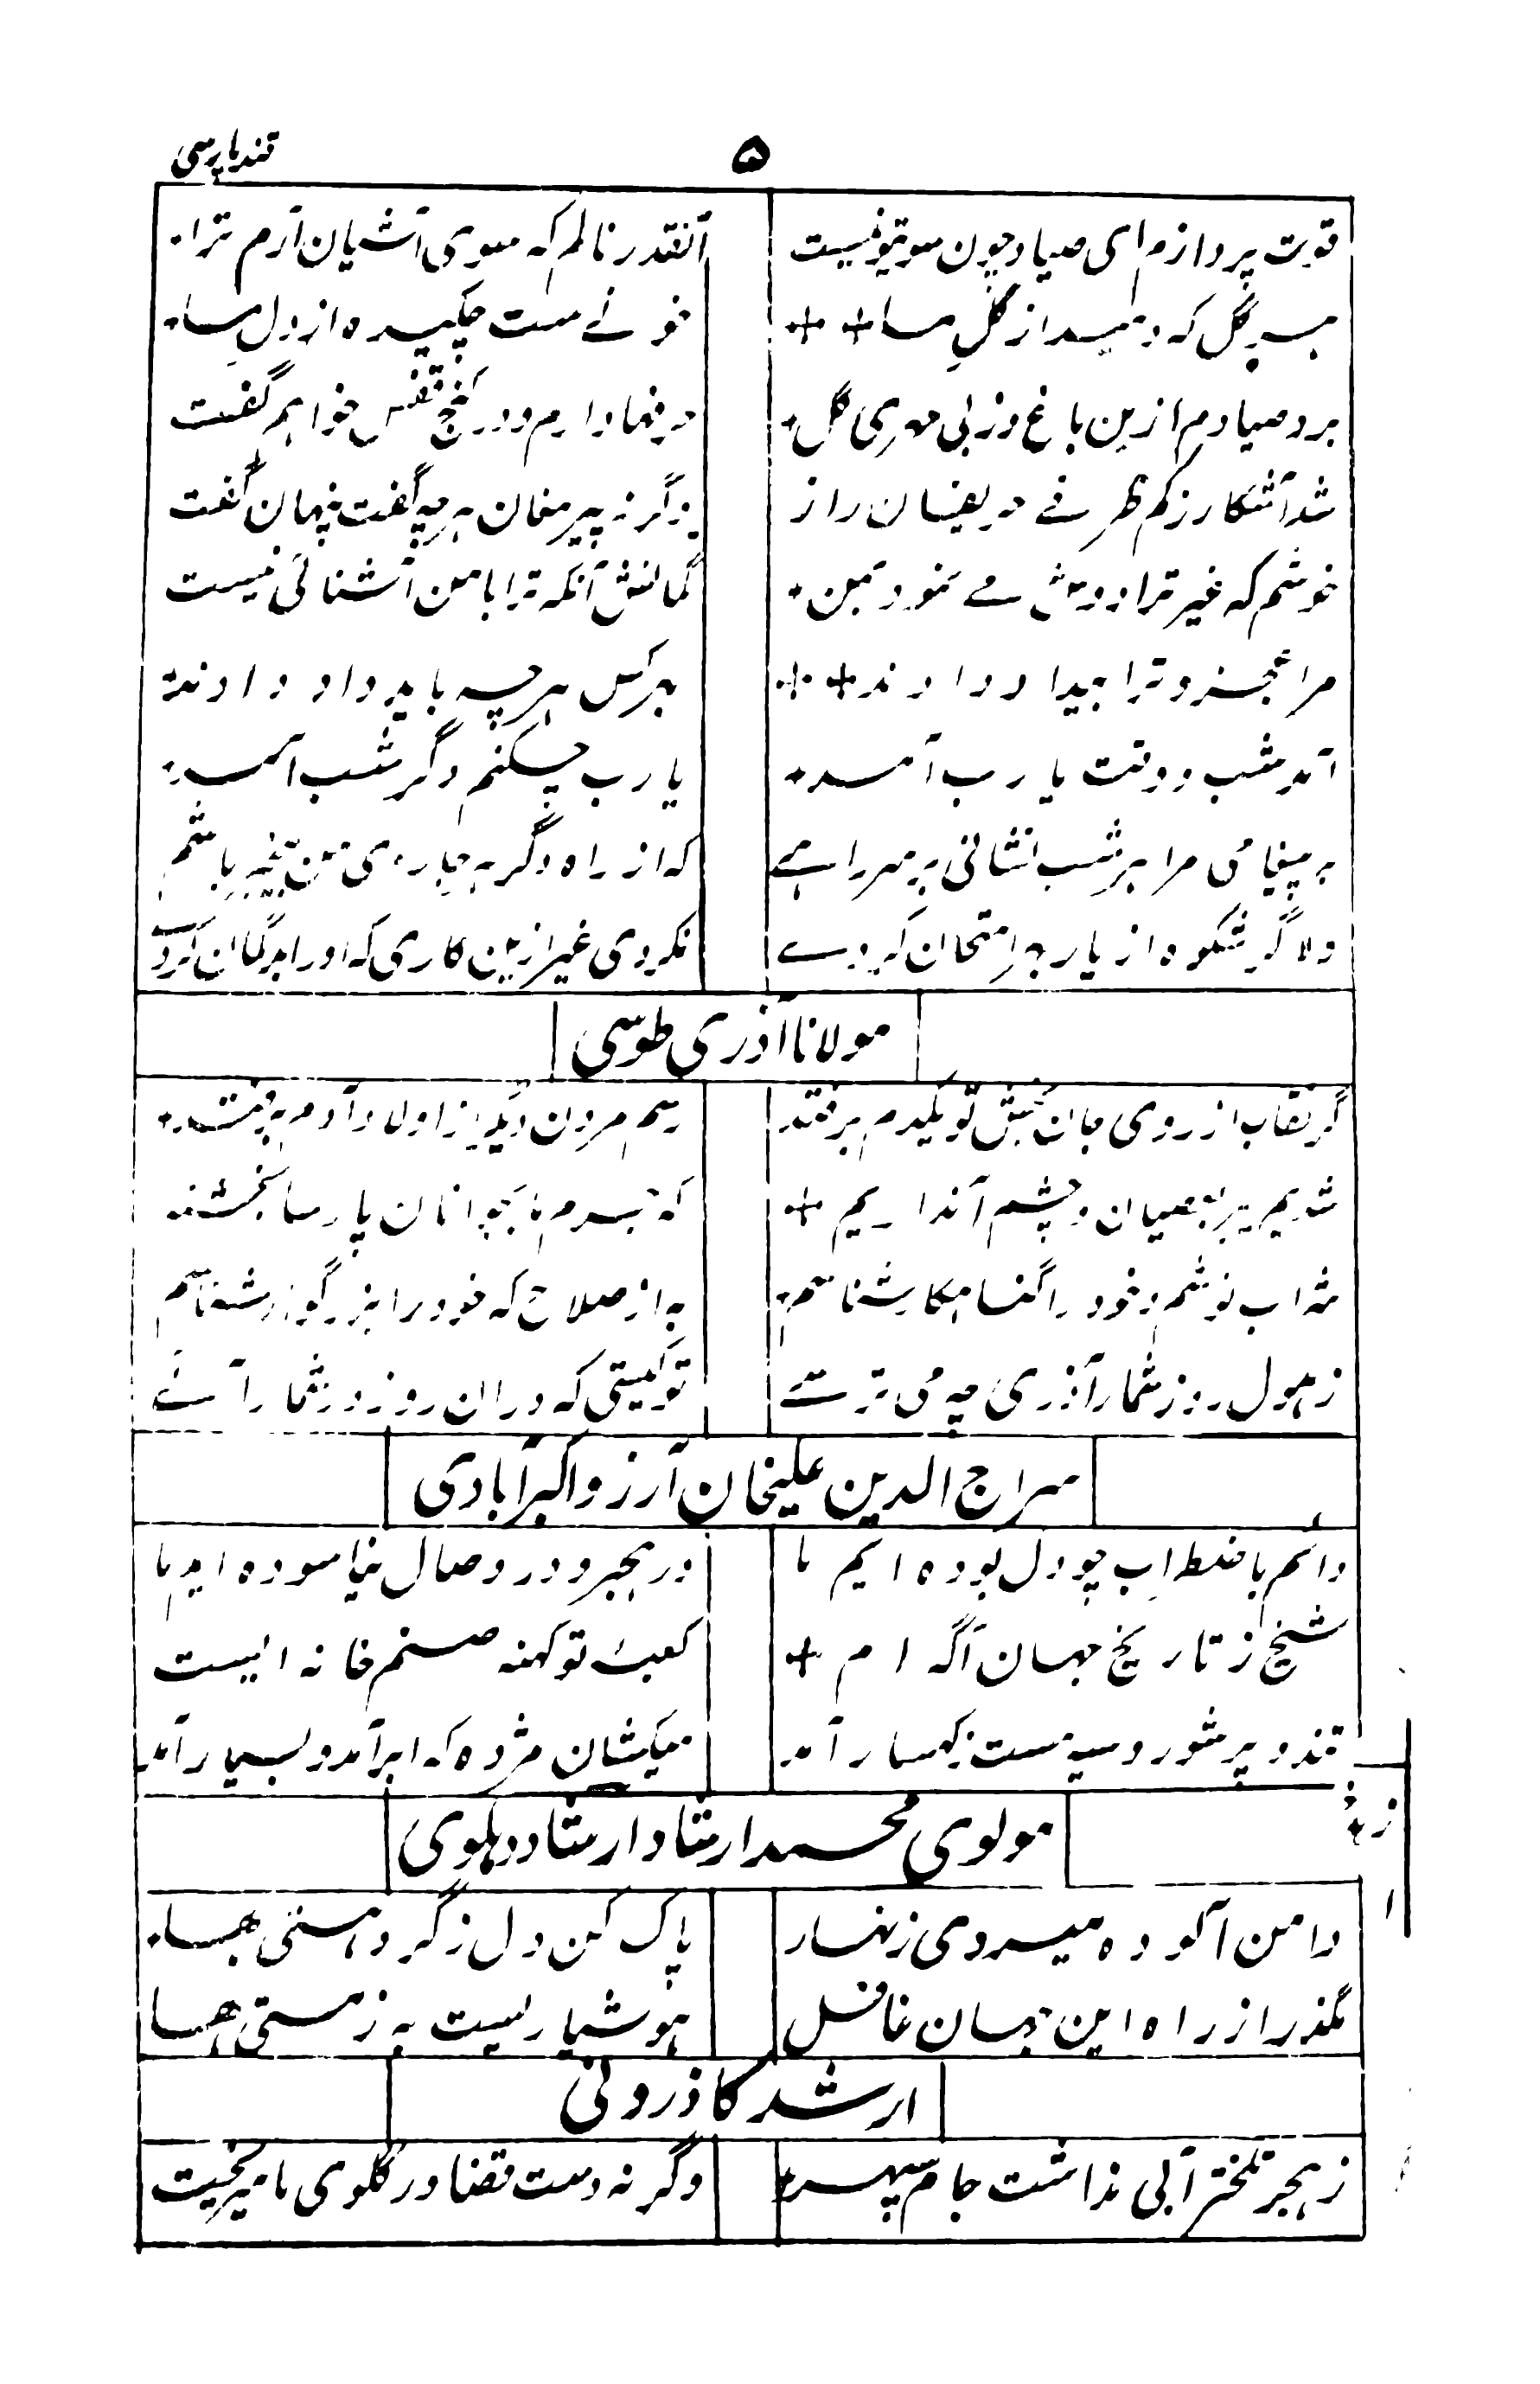 قند پارسی
۵
قوت پروازم ای صیاد چون سویتو نیست
آنقدر نالم که سوی آشیان آرم ترا
هر گل که دمید از گلِ ما
خونے ست چکیده از دل ما
برد صیادم ازین باغ و ز بی مهری گل
حرفها دارم و در کنج قفس خواهم گفت
شد آشکار ز کم ظرفے حریفان راز
وگرنه پیر مغان هر چه گفت پنهان گفت
خوشم که غیر ترا دوستش مے نمود بمن
گمانش آنکه ترا با من آشنائی نیست
مرا عجز و ترا بیداد دادند
بهر کس هر چه باید داد دادند
آمد شب و وقت یا رب آمد
یا رب چکنم دگر شب آمد
به پیغامی مرا هر شب نشانی بر سر راہے
که از راه دگر
دلا گر شکوه از یار بد امتحان کردے
نکردی غیر ازین کاری که او را بدگمان کردے
مولانا آذری طوسی
گر نقاب از روی جان بخش تو یکدم برفتد
رسم مردن دیگر از اولاد آدم برفتد
شدیم پیر بعصیان و چشم آنداریم
که جرم ما بجوانان پارسا بخشند
شراب نوشم و خود را گناهکار شناسم
به از صلاح که خود را بزرگوار شناسم
ز هول روز شمار آذری چه می ترسے
تو کیستی که دران روز در شمار آئے
سراج الدین علیخان آرزو اکبرآبادی
دائم باضطراب چو دل بوده ایم ما
در هجر و در وصال نیاسوده ایم ما
شیخ ز تاریخ جهان آگه ام
کعبهٔ تو کهنه صنم خانه ایست
تند و پر شور و سیه مست ز کهسار آمد
میکشان مژده که ابر آمد و بسیار آمد
مولوی محمد ارشاد ارشاد دہلوی
دامن آلوده میروی زنهار
پاک کن دل ز گرد هستی ها
بگذر از راه این جهان غافل
هوشیاریست به ز مستی ها
ارشد کاذرونی
ز هجر تلختر آبی نداشت جام سپهر
وگرنه دست قضا در گلوی ما میریخت